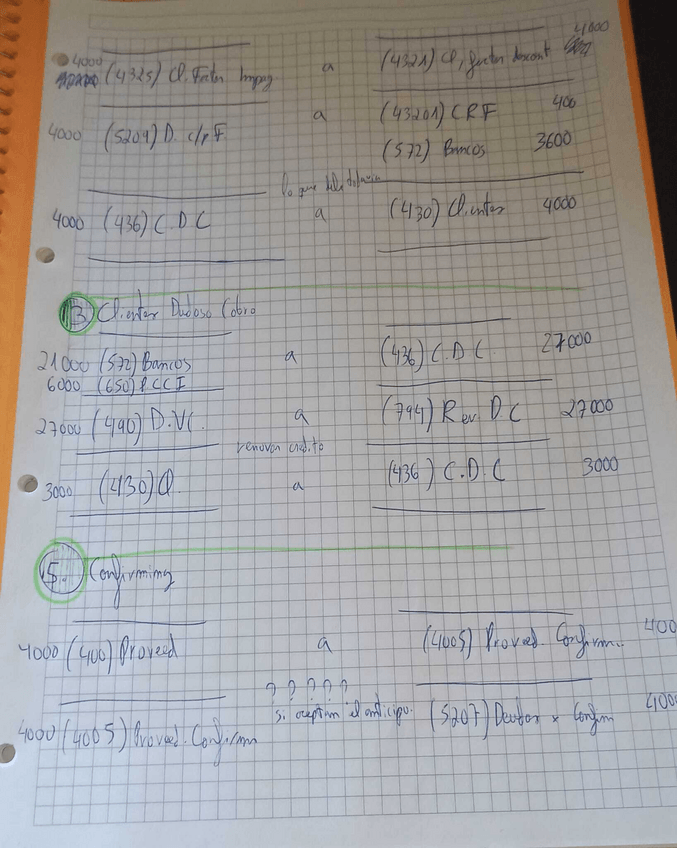 4000 (4325) Cl. Factor Impag a (4321) Cl, factor descont 4000
4000 (5209) D. c/p F. a (43201) CRF 400
(572) Bancos 3600
lo que
4000 (436) C.D.C a (430) Clientes 4000
13 Clientes Dudoso Cobro
21000 (572) Bancos a (436) C.D.C. 27000
6000 (650) PCCI
27000 (490) D.VC. a (794) Rev. D.C 27000
renovar credito
3000 (430) Cl. a (436) C.D.C 3000
5. Confirming
4000 (400) Proveed a (4005) Proveed. Confirm.. 400
? ? ? ? ?
si aceptan el anticipo.
4000 (4005) Proveed. Confirm (5207) Deudas x Confirm 400